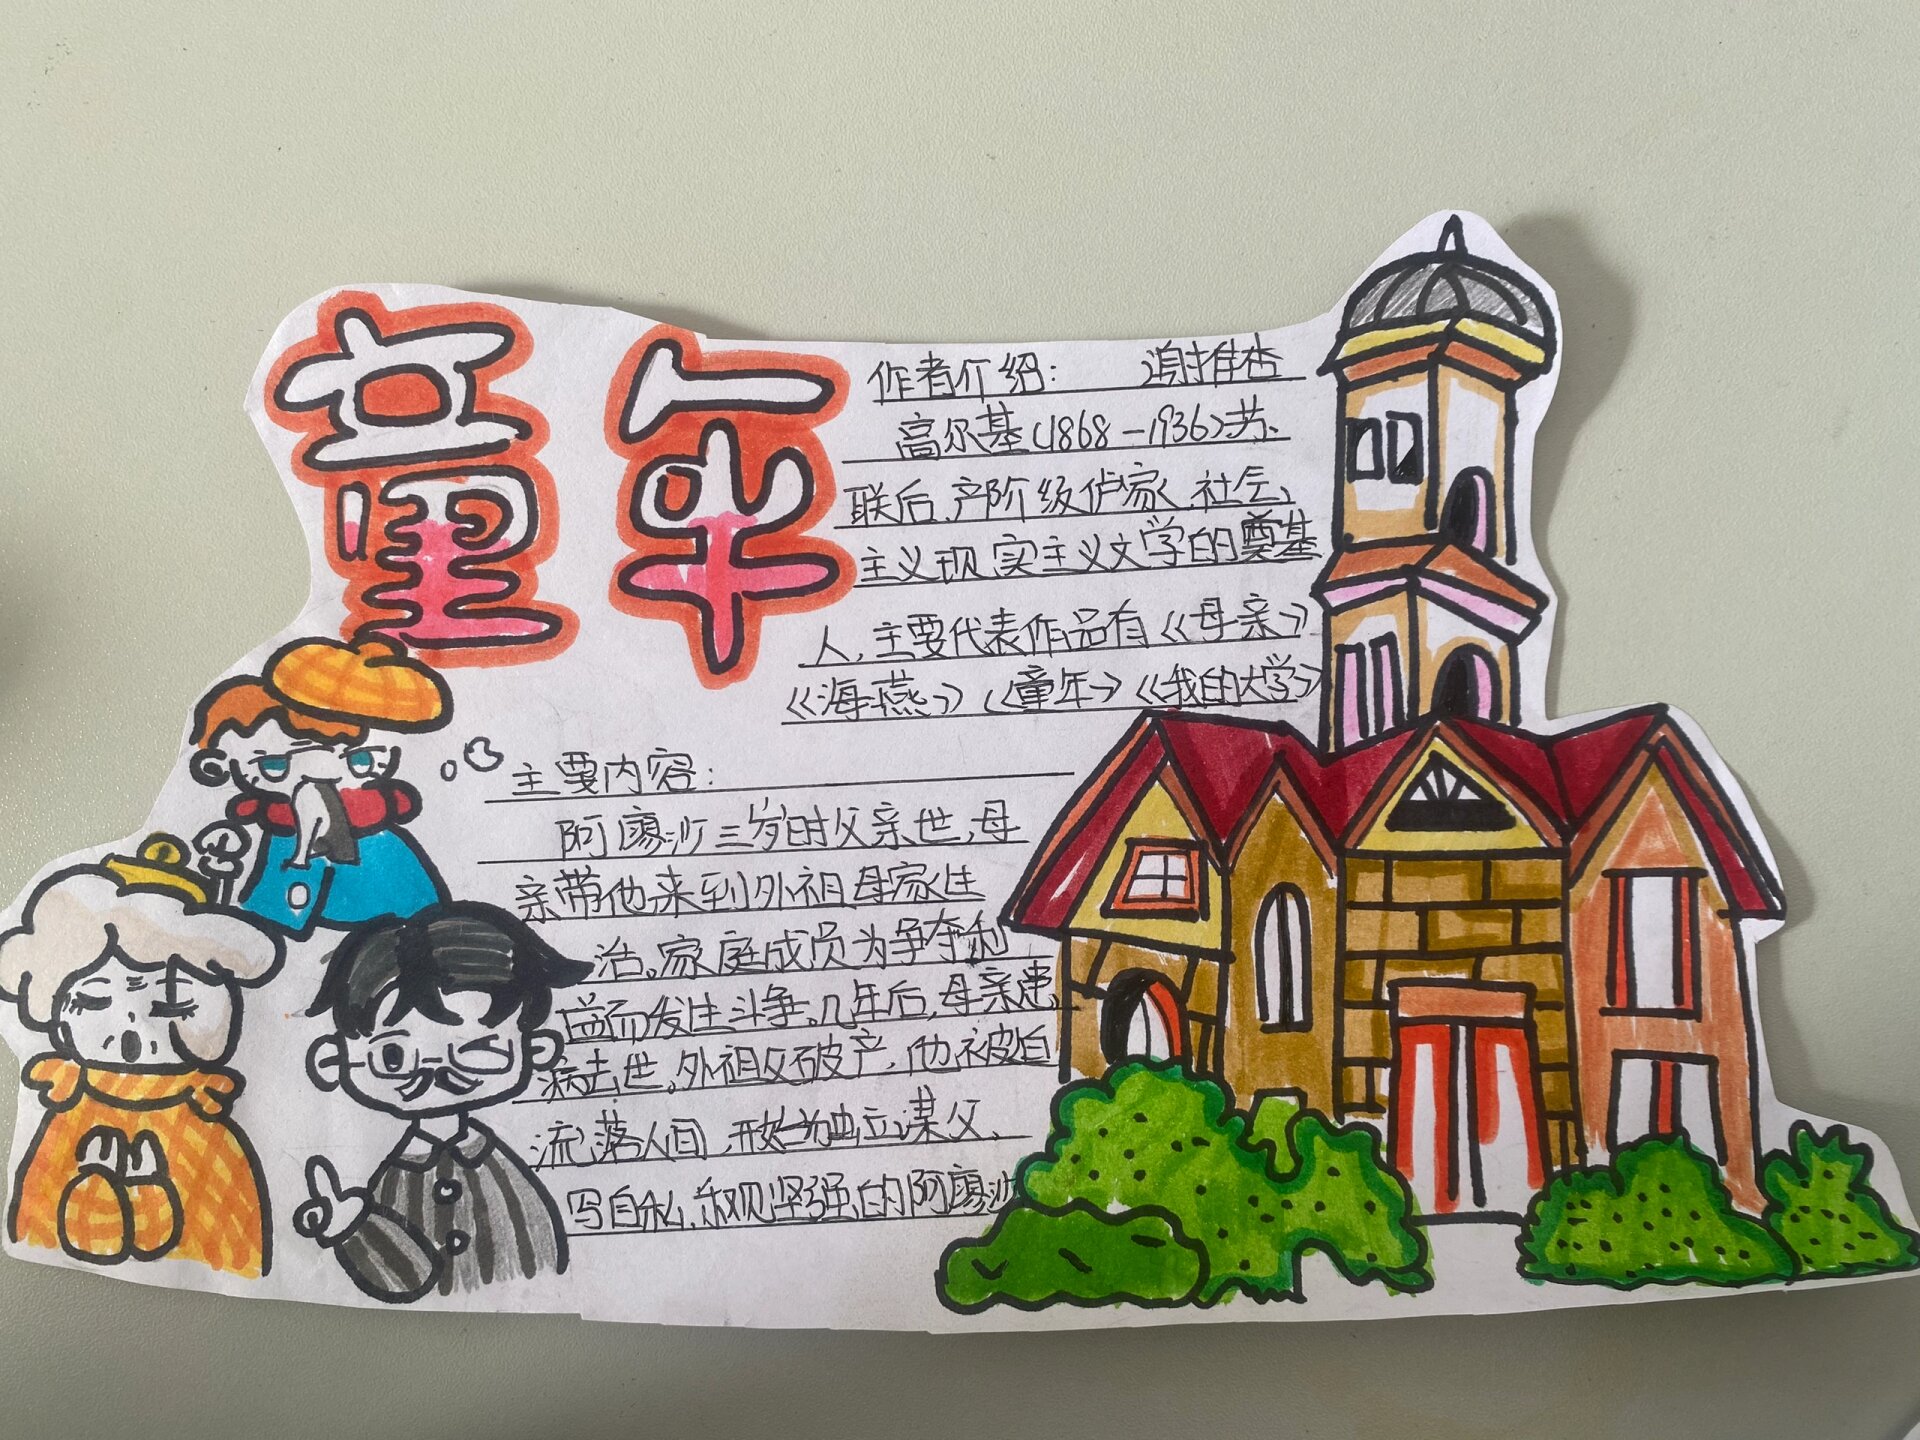 童年
作者介绍： 谢推杏
高尔基(1868-1936)苏、
联后、产阶级作家、社会、
主义现实主义文学的奠基
人，主要代表作品有《母亲》
《海燕》《童年》《我的大学》
主要内容：
阿廖沙三岁时父亲世，母
亲带他来到外祖母家生
活。家庭成员为争夺利
益而发生斗争。几年后，母亲患
病去世。外祖父破产，他被迫
流落人间，开始独立谋
自私，乐观坚强的阿廖沙